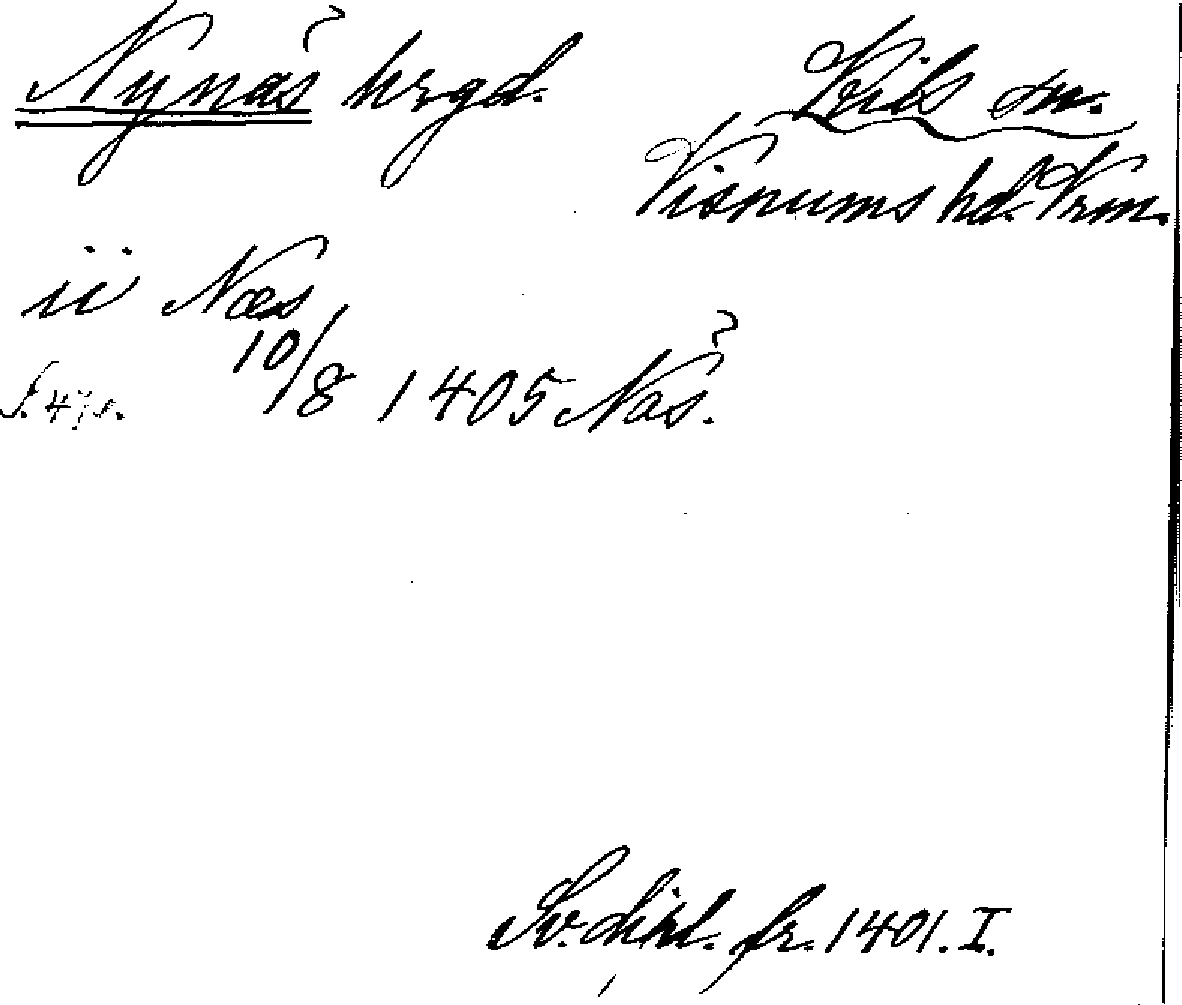 Nynäs hrgd. Kils sn.
Visnums hd. Vrm.
ii Næs
10/8 1405 Näs.
S. 471.
Sv. dipl. fr. 1401. I.